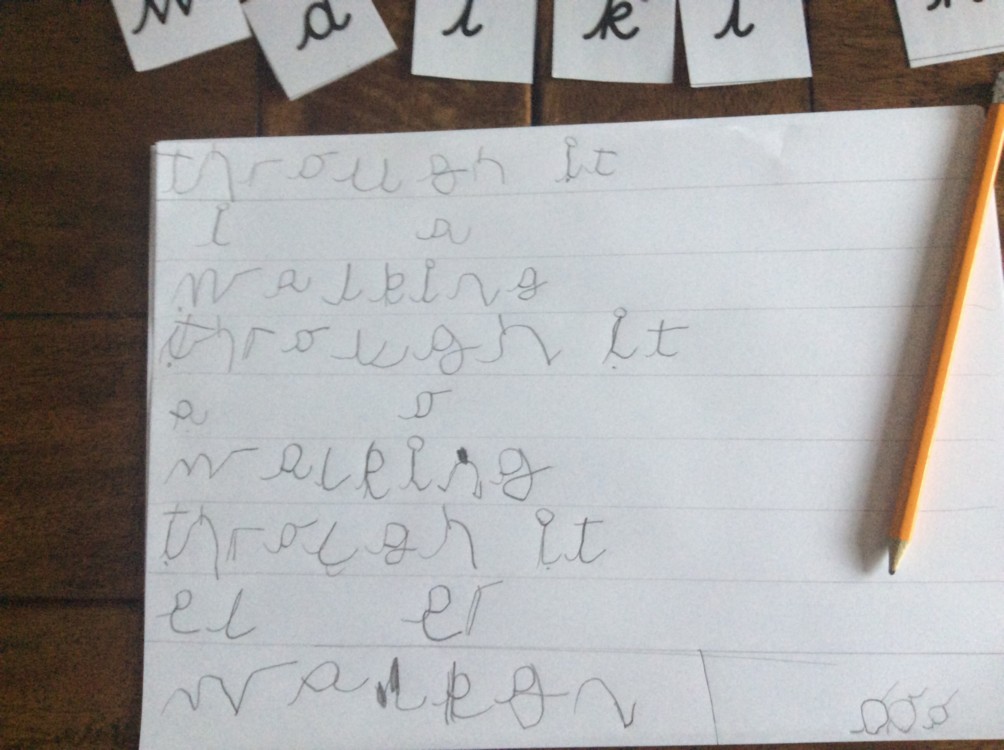 w a l k i n
through it
i a
walking
through it
a o
walking
throigh it
el er
walkgn
ooo